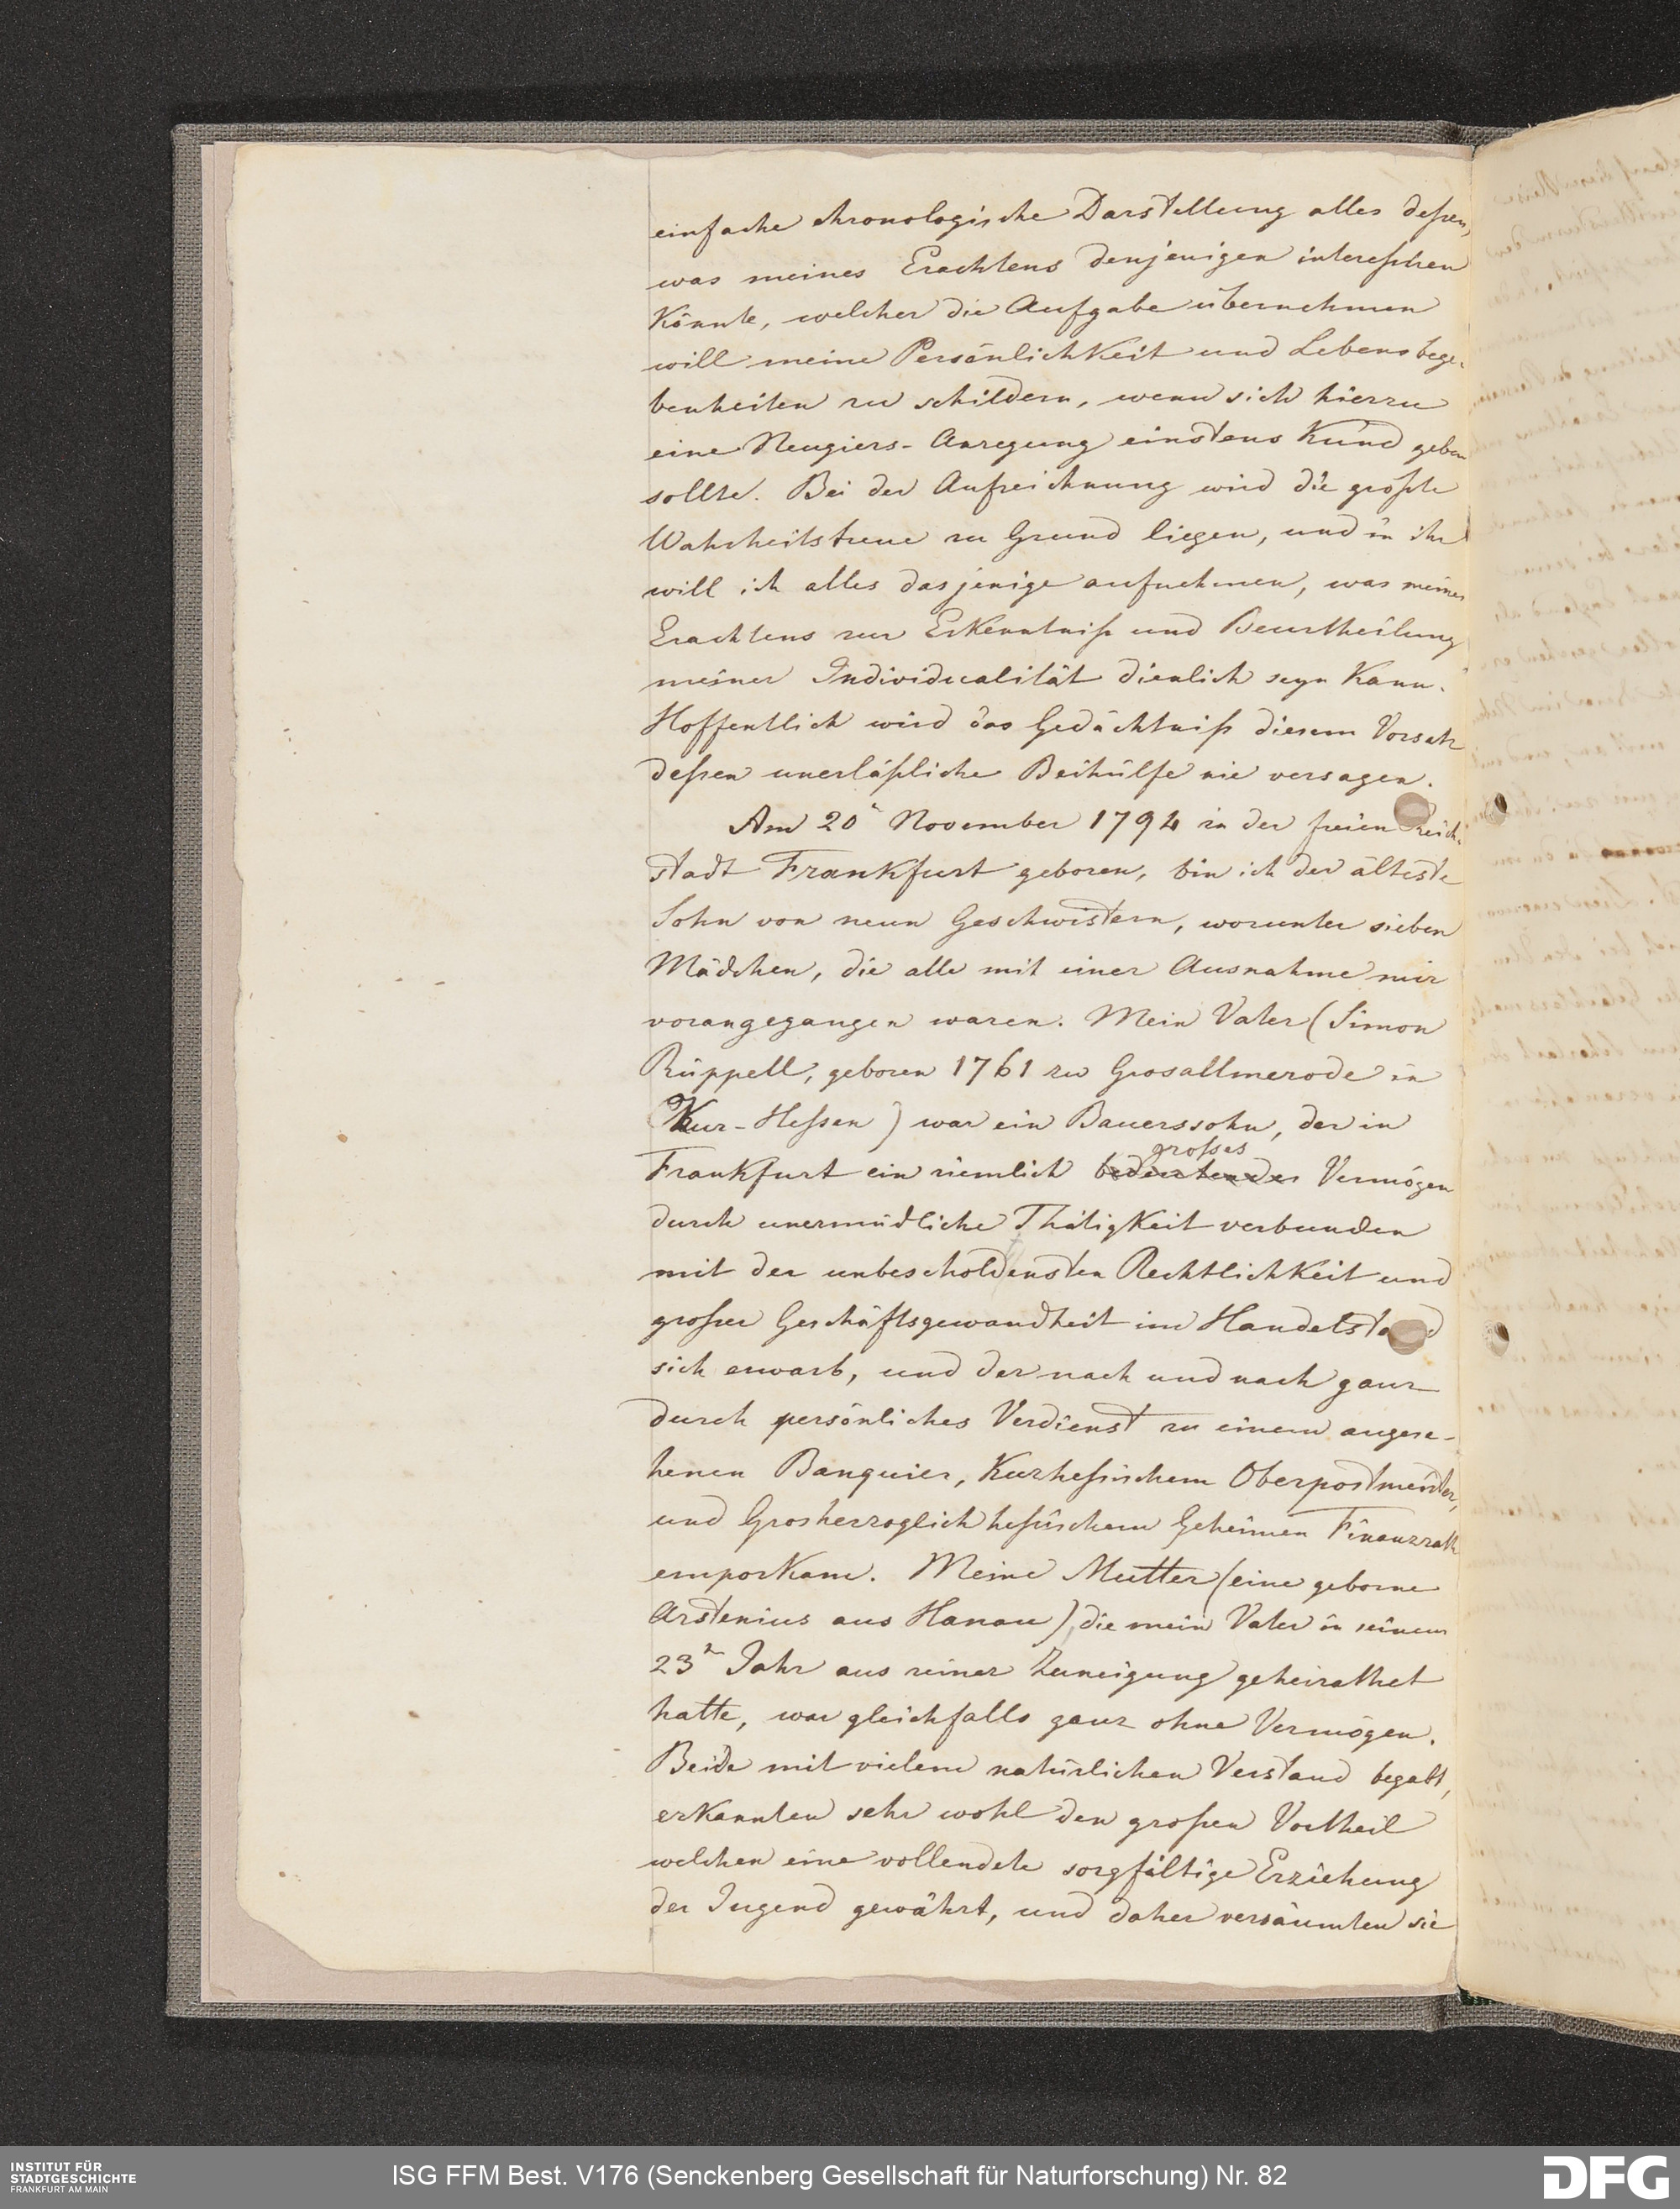 einfache chronologische Darstellung alles deßen,
was meines Erachtens denjenigen intereßiren
könnte, welcher die Aufgabe übernehmen
will meine Persönlichkeit und Lebensbege-
benheiten zu schildern, wenn sich hierzu
eine Neugiers-Anregung einstens Kund geben
sollte. Bei der Aufzeichnung wird die größte
Wahrheitstreue zu Grund liegen, und in ihr
will ich alles dasjenige aufnehmen, was meines
Erachtens zur Erkenntniß und Beurtheilung
meiner Individualität dienlich seyn kann.
Hoffentlich wird das Gedächtniß diesem Vorsatz
deßen unerläßliche Beihülfe nie versagen.
Am 20n November 1794 in der freien Reichs-
stadt Frankfurt geboren, bin ich der älteste
Sohn von neun Geschwistern, worunter sieben
Mädchen, die alle mit einer Ausnahme mir
vorangegangen waren. Mein Vater (Simon
Rüppell, geboren 1761 zu Grosallmerode in
Kur-Heßen) war ein Bauerssohn, der in
grosses
Frankfurt ein ziemlich bedeutendes Vermögen
durch unermüdliche Thätigkeit verbunden
mit der unbescholdensten Rechtlichkeit und
großer Geschäftsgewandheit im Handelstand
sich erwarb, und der nach und nach ganz
durch persönliches Verdienst zu einem angese-
henen Banquier, Kurheßischem Oberpostmeister,
und Grosherzoglich heßischem Geheimen Finanzrath
emporkam. Meine Mutter (eine geborne
Arstenius aus Hanau) die mein Vater in seinem
23n Jahr aus reiner Zuneigung geheirathet
hatte, war gleichfalls ganz ohne Vermögen.
Beide mit vielem natürlichen Verstand begabt,
erkannten sehr wohl den großen Vortheil
welchen eine vollendete sorgfältige Erziehung
der Jugend gewährt, und daher versäumten sie
INSTITUT FÜR
STADTGESCHICHTE
FRANKFURT AM MAIN
ISG FFM Best. V176 (Senckenberg Gesellschaft für Naturforschung) Nr. 82
DFG